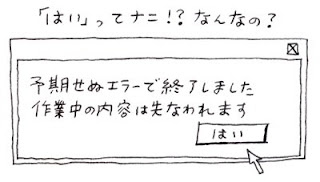 「はい」ってナニ!? なんなの?
予期せぬエラーで終了しました
作業中の内容は失なわれます
はい